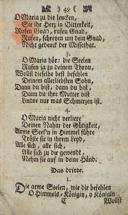 ) 49 (
O Maria zu dir seufzen,
Sie ihr Herz in Bitterkeit,
Rufen Gnad, rufen Gnad,
Rufen, schreyen zu dem Gnad
Nicht gedenck der Missethat.
3.
O Maria hör: die Seelen
Rufen ja zu deinem Thron,
Wollst dieselbe best befehlen
Deinem allerliebsten Sohn,
Dann du bist, dann du bist
Dann du ihre Mutter bist
Lindre nur was Schmerzen ist.
4.
O Maria nicht verliere
Deinen Nahmen der Gütigkeit,
Arme Seel'n in Himmel führe
Tröste sie in ihrem Leyd,
Alle sich, alle sich,
Alle sich zu dir gewendt,
Nehme sie auf in deine Händ.
Das dritte.
1.
Die arme Seelen, wie dir befohlen
O Himmels-Königin, o Königin
Wollst